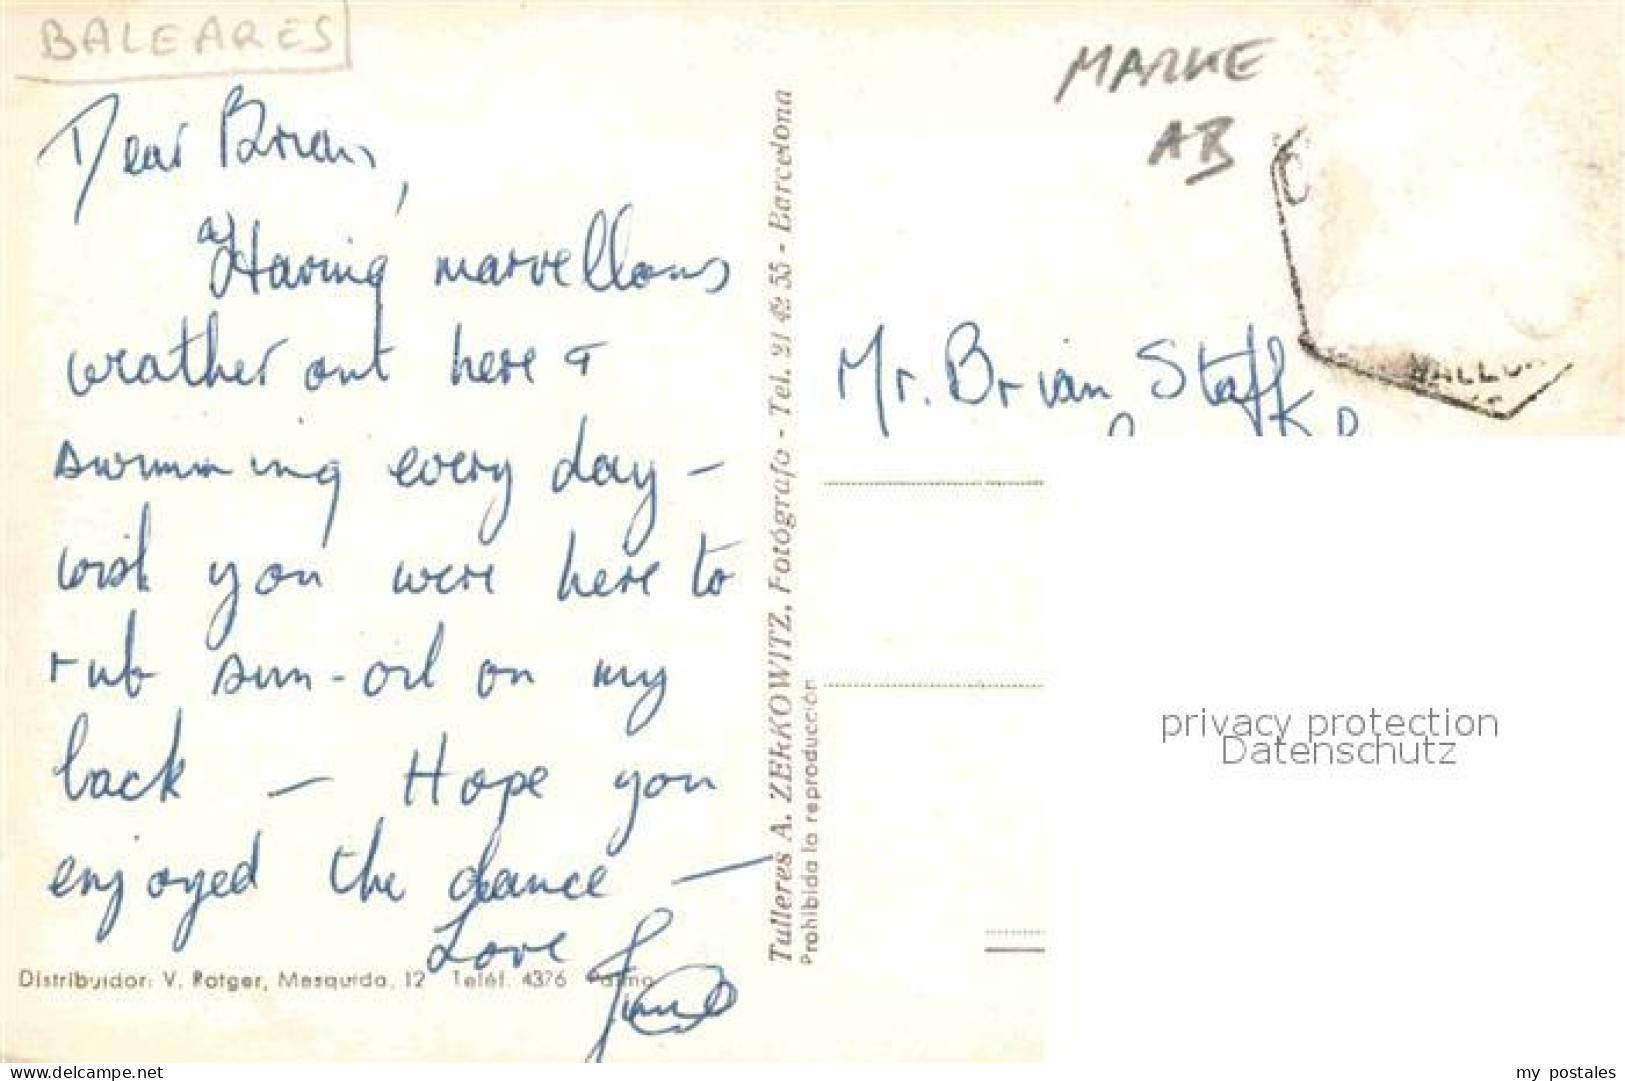 BALEARES
Dear Brian,
Having marvellous
weather out here &
swimming every day —
wish you were here to
rub sun-oil on my
back — Hope you
enjoyed the dance —
Love
Distribuidor: V. Rotger, Mesquida, 12 Teléf. 4376 Palma
Talleres A. ZERKOWITZ, Fotógrafo - Tel. 21 42 55 - Barcelona
Prohibida la reproducción
MARKE
AB
Mr. Brian
privacy protection
Datenschutz
www.delcampe.net
my_postales